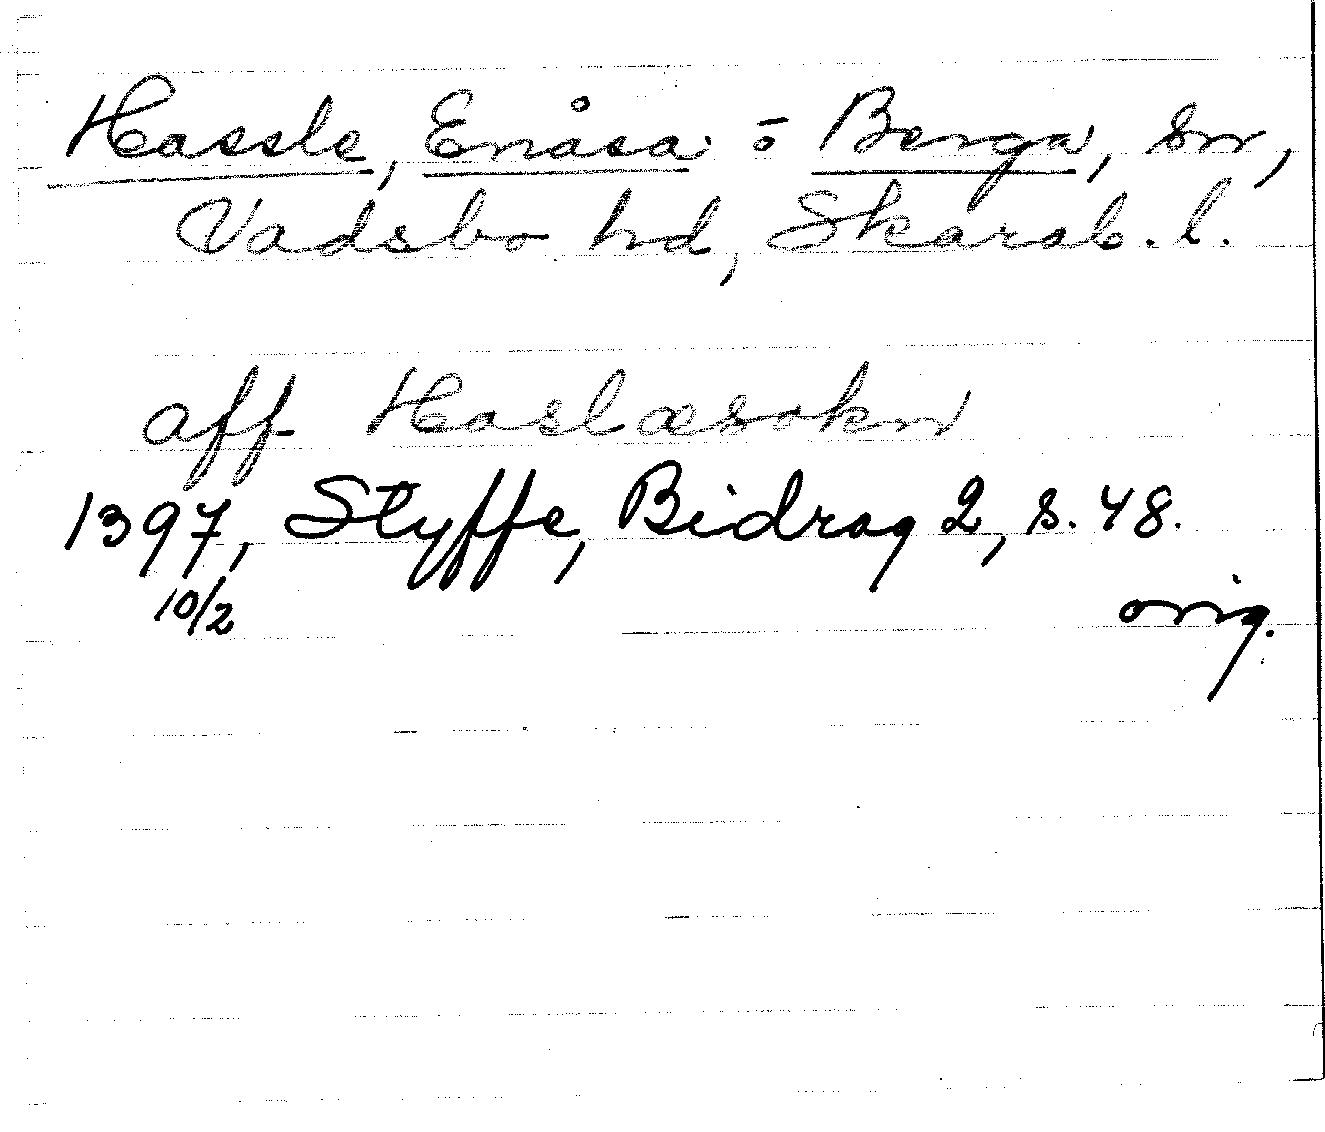 Hassle, Enåsa o Berga, sn,
Vadsbo hd, Skarab. l.
aff Haslæsokn
1397, Styffe, Bidrag 2, s. 48.
10/2 orig.